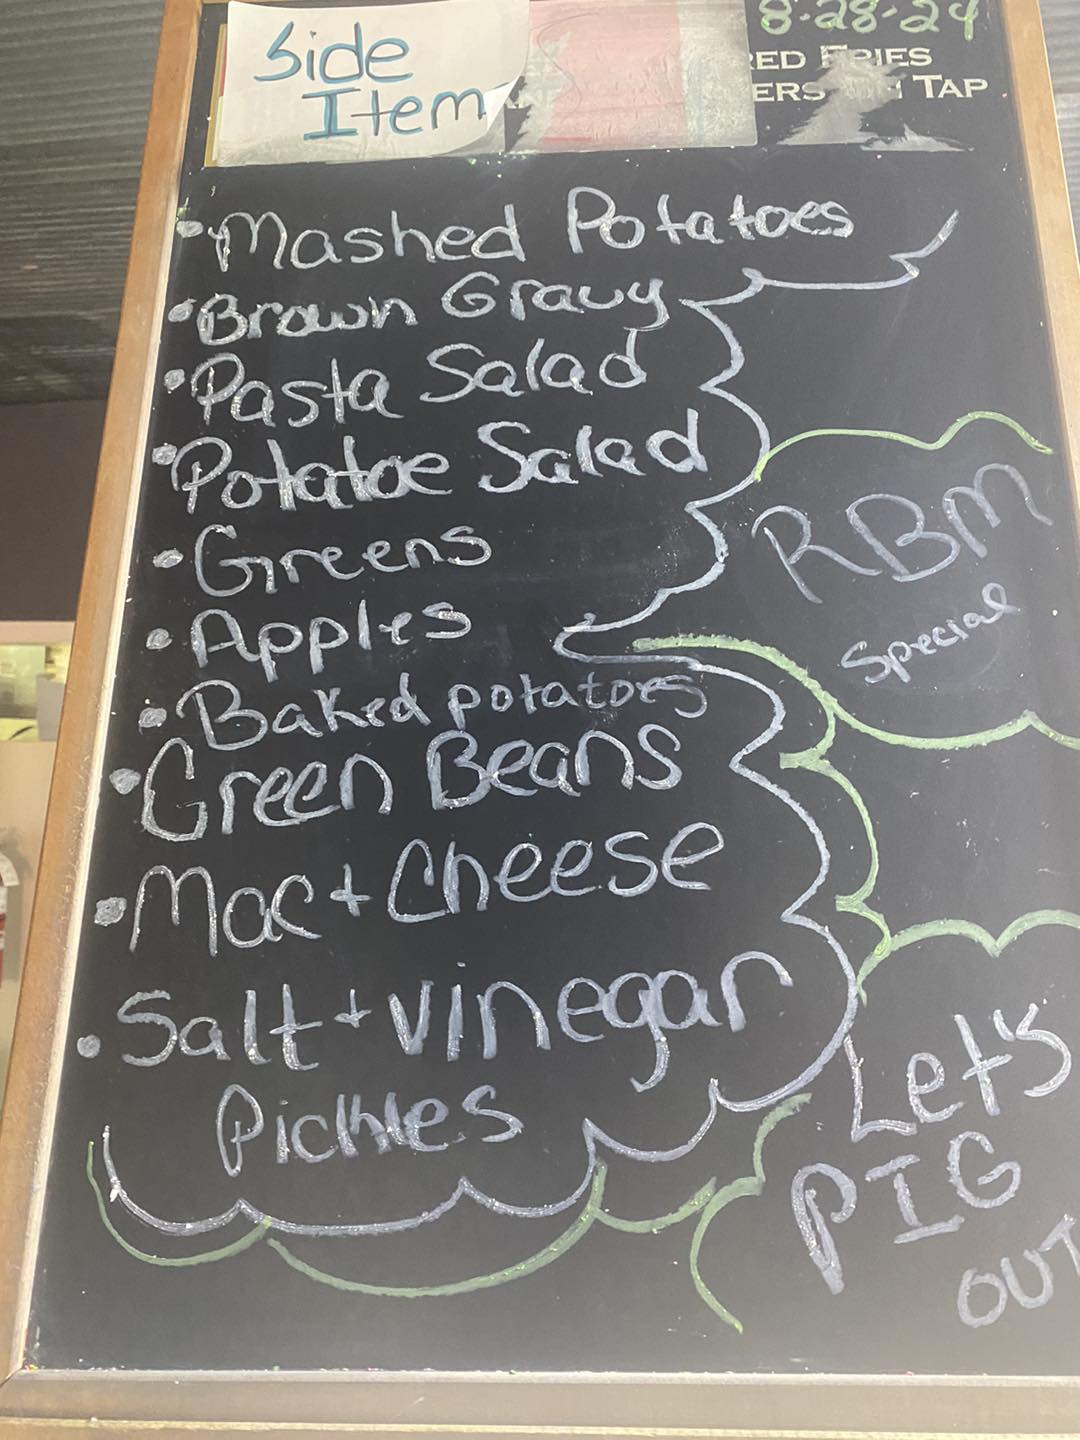 8-28-24
Side
Item
RED FRIES
ERS ON TAP
• Mashed Potatoes
• Brown Gravy
• Pasta Salad
• Potatoe Salad
• Greens
• Apples
• Baked potatoes
• Green Beans
• Mac + Cheese
• Salt + Vinegar
Pickles
RBM
Special
Let's
PIG
OUT